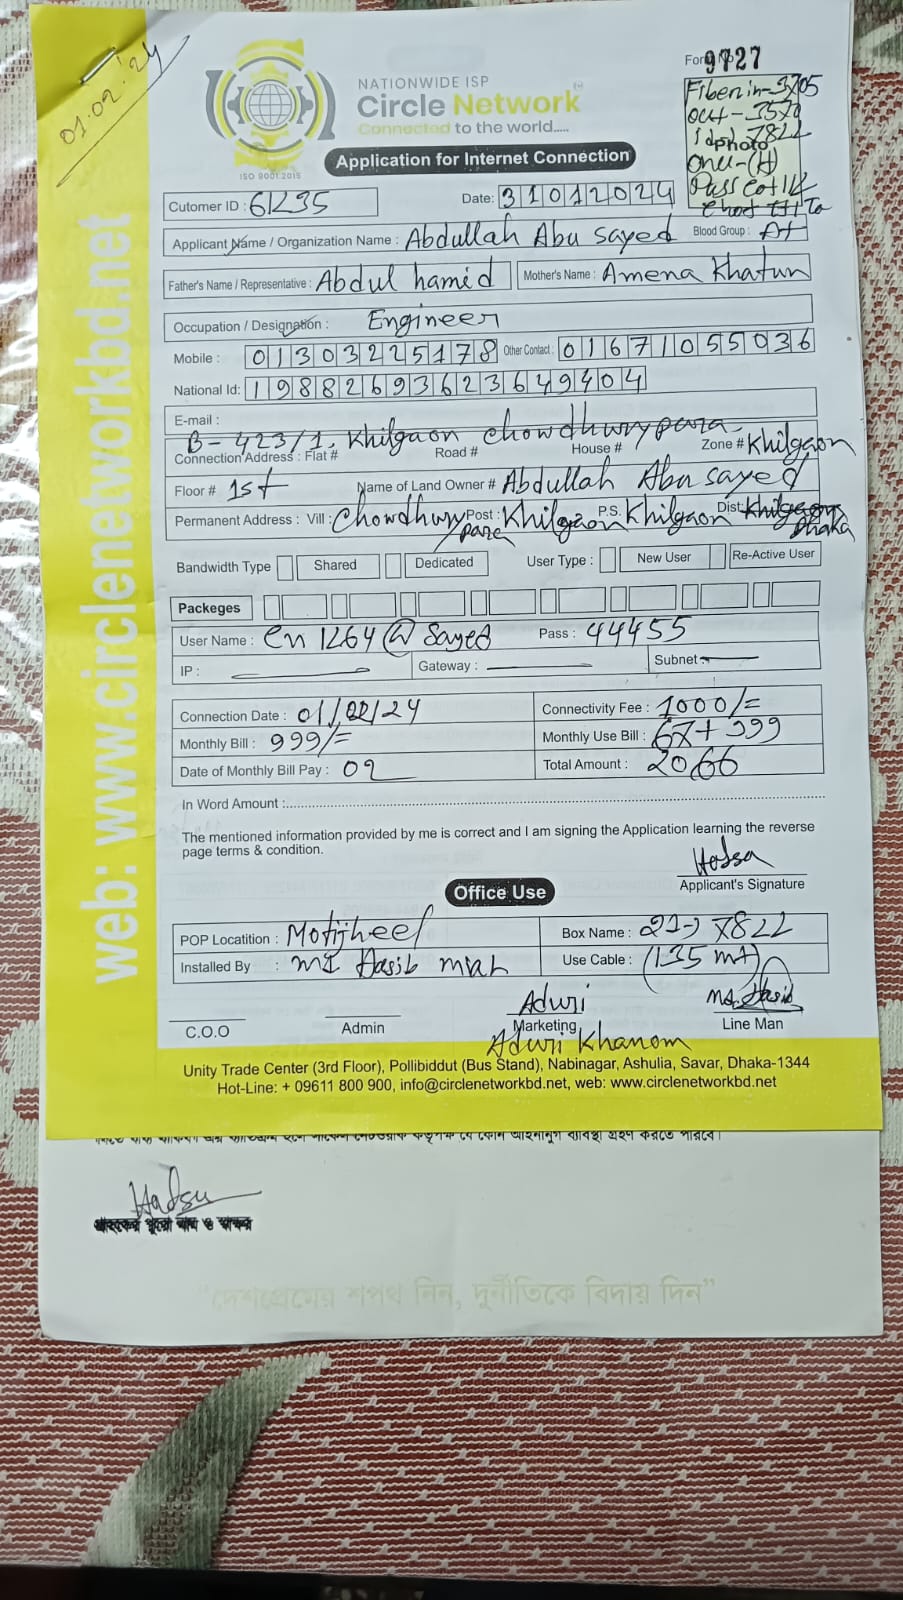 01.02.24
NATIONWIDE ISP
Circle Network
Connected to the world.....
ISO 9001:2015
Application for Internet Connection
9727
Fiber in - 3705
out - 3570
photo
onu - (H)
Cutomer ID : 61295
Date: 31012024
Applicant Name / Organization Name : Abdullah Abu Sayed Blood Group : A+
Father's Name / Representative : Abdul hamid Mother's Name : Amena Khatun
Occupation / Designation : Engineer
Mobile : 01303225178 Other Contact : 01671055036
National Id: 19882693623649404
E-mail :
B - 423/1, Khilgaon Chowdhury para
Connection Address : Flat # Road # House # Zone # Khilgaon
Floor # 1st Name of Land Owner # Abdullah Abu sayed
Permanent Address : Vill : Chowdhury para Post : Khilgaon P.S. Khilgaon Dist: Khilgaon Dhaka
Bandwidth Type Shared Dedicated User Type : New User Re-Active User
Packeges
User Name : cn1264@sayed Pass : 44455
IP : Gateway : Subnet :
Connection Date : 01/02/24 Connectivity Fee : 1000/=
Monthly Bill : 999/= Monthly Use Bill : 67+999
Date of Monthly Bill Pay : 02 Total Amount : 2066
In Word Amount :
The mentioned information provided by me is correct and I am signing the Application learning the reverse
page terms & condition.
Hafsa
Applicant's Signature
Office Use
POP Locatition : Motijheel Box Name : 7822
Installed By : MD Hasib miah Use Cable : (135 mt)
Aduri Md. Hasib
C.O.O Admin Marketing Line Man
Aduri Khanom
Unity Trade Center (3rd Floor), Pollibiddut (Bus Stand), Nabinagar, Ashulia, Savar, Dhaka-1344
Hot-Line: + 09611 800 900, info@circlenetworkbd.net, web: www.circlenetworkbd.net
web: www.circlenetworkbd.net
যে কোন আইনানুগ ব্যবস্থা গ্রহণ করতে পারবে।
Hafsa
গ্রাহকের পুরো নাম ও স্বাক্ষর
"দেশপ্রেমের শপথ নিন, দুর্নীতিকে বিদায় দিন"